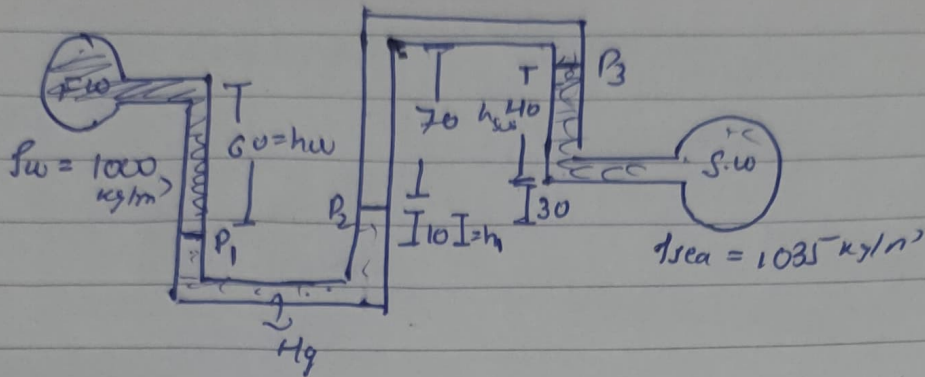 Fw
ρw = 1000
kg/m³
60 = hw
P₁
P₂
Hg
70
I10 I = h₁
hsea 40
T
P₃
I30
S.w
ρsea = 1035 kg/m³